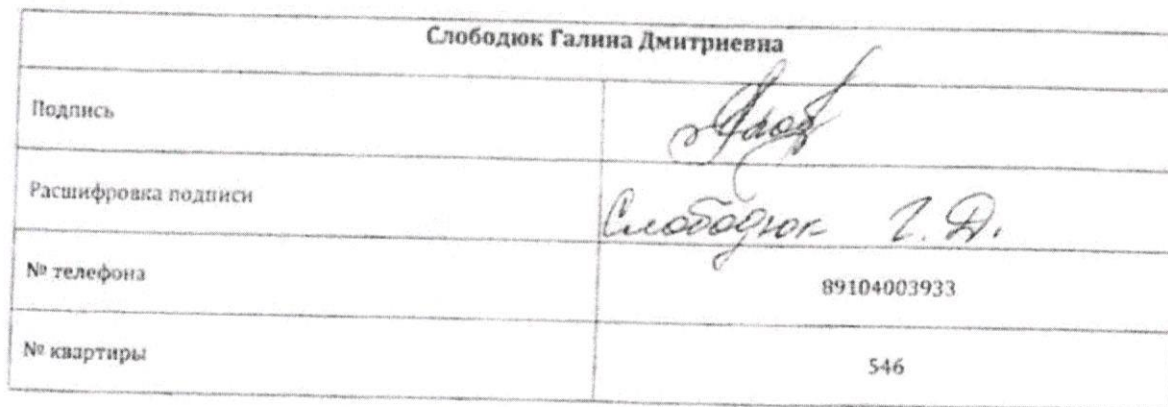 Слободюк Галина Дмитриевна
Подпись
Расшифровка подписи Слободюк Г. Д.
№ телефона 89104003933
№ квартиры 546